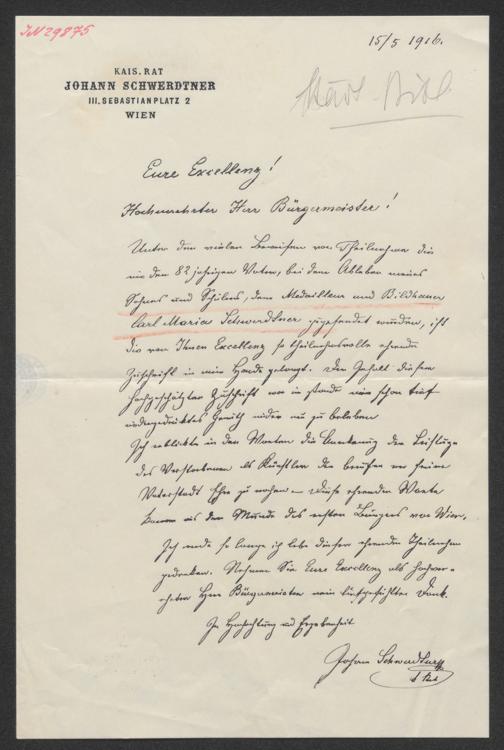 IN 29875
15/5 1916.
KAIS. RAT
JOHANN SCHWERDTNER
III. SEBASTIANPLATZ 2
WIEN
Stadt-Bibl
Eure Excellenz!
Hochverehrter Herr Bürgermeister!
Unter den vielen Beweisen von Theilnahme die
mir dem 82 jährigen Vater, bei dem Ableben meines
Sohnes und Schülers, dem Medailleur und Bildhauer
Carl Maria Schwerdtner zugesendet wurden, ist
die von Ihnen Excellenz so theilnahmsvolle ehrende
Zuschrift in meine Hände gelangt. Der Inhalt dieser
hochgeschätzten Zuschrift war im stande mein schon tief
niedergedrücktes Gemüth wieder neu zu beleben
Ich erblickte in den Worten die Anerkennung der Leistung
des Verstorbenen als Künstler der berufen war seiner
Vaterstadt Ehre zu machen – diese ehrenden Worte
kamen aus dem Munde des ersten Bürgers von Wien.
Ich werde so lange ich lebe dieser ehrenden Theilnahme
gedenken. Nehmen Sie Eure Excellenz als hochver-
ehrter Herr Bürgermeister mein tiefgefühlten Dank.
In Hochachtung und Ergebenheit
Johann Schwerdtner